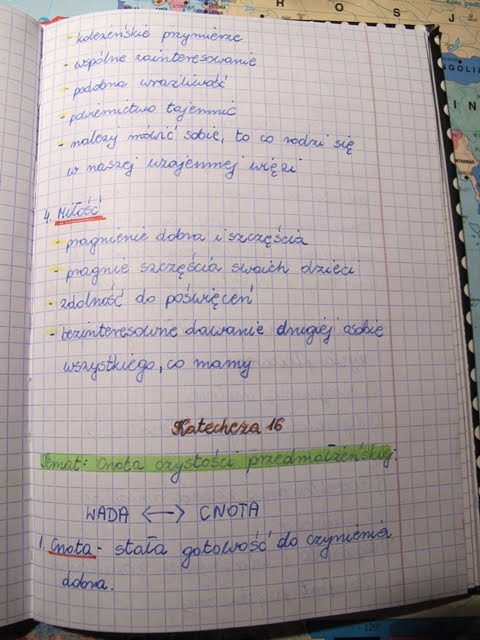 - koleżeńskie przymierze
- wspólne zainteresowanie
- podobna wrażliwość
- tajemnic
- należy mówić sobie, to co rodzi się
w naszej wzajemnej więzi
4. Miłość
- pragnienie dobra i szczęścia
- pragnie szczęścia swoich dzieci
- zdolność do poświęceń
- bezinteresowne dawanie drugiej osobie
wszystkiego, co mamy
Katecheza 16
Temat: Cnota czystości przedmałżeńskiej:
WADA <-> CNOTA
1. Cnota - stała gotowość do czynienia
dobra.